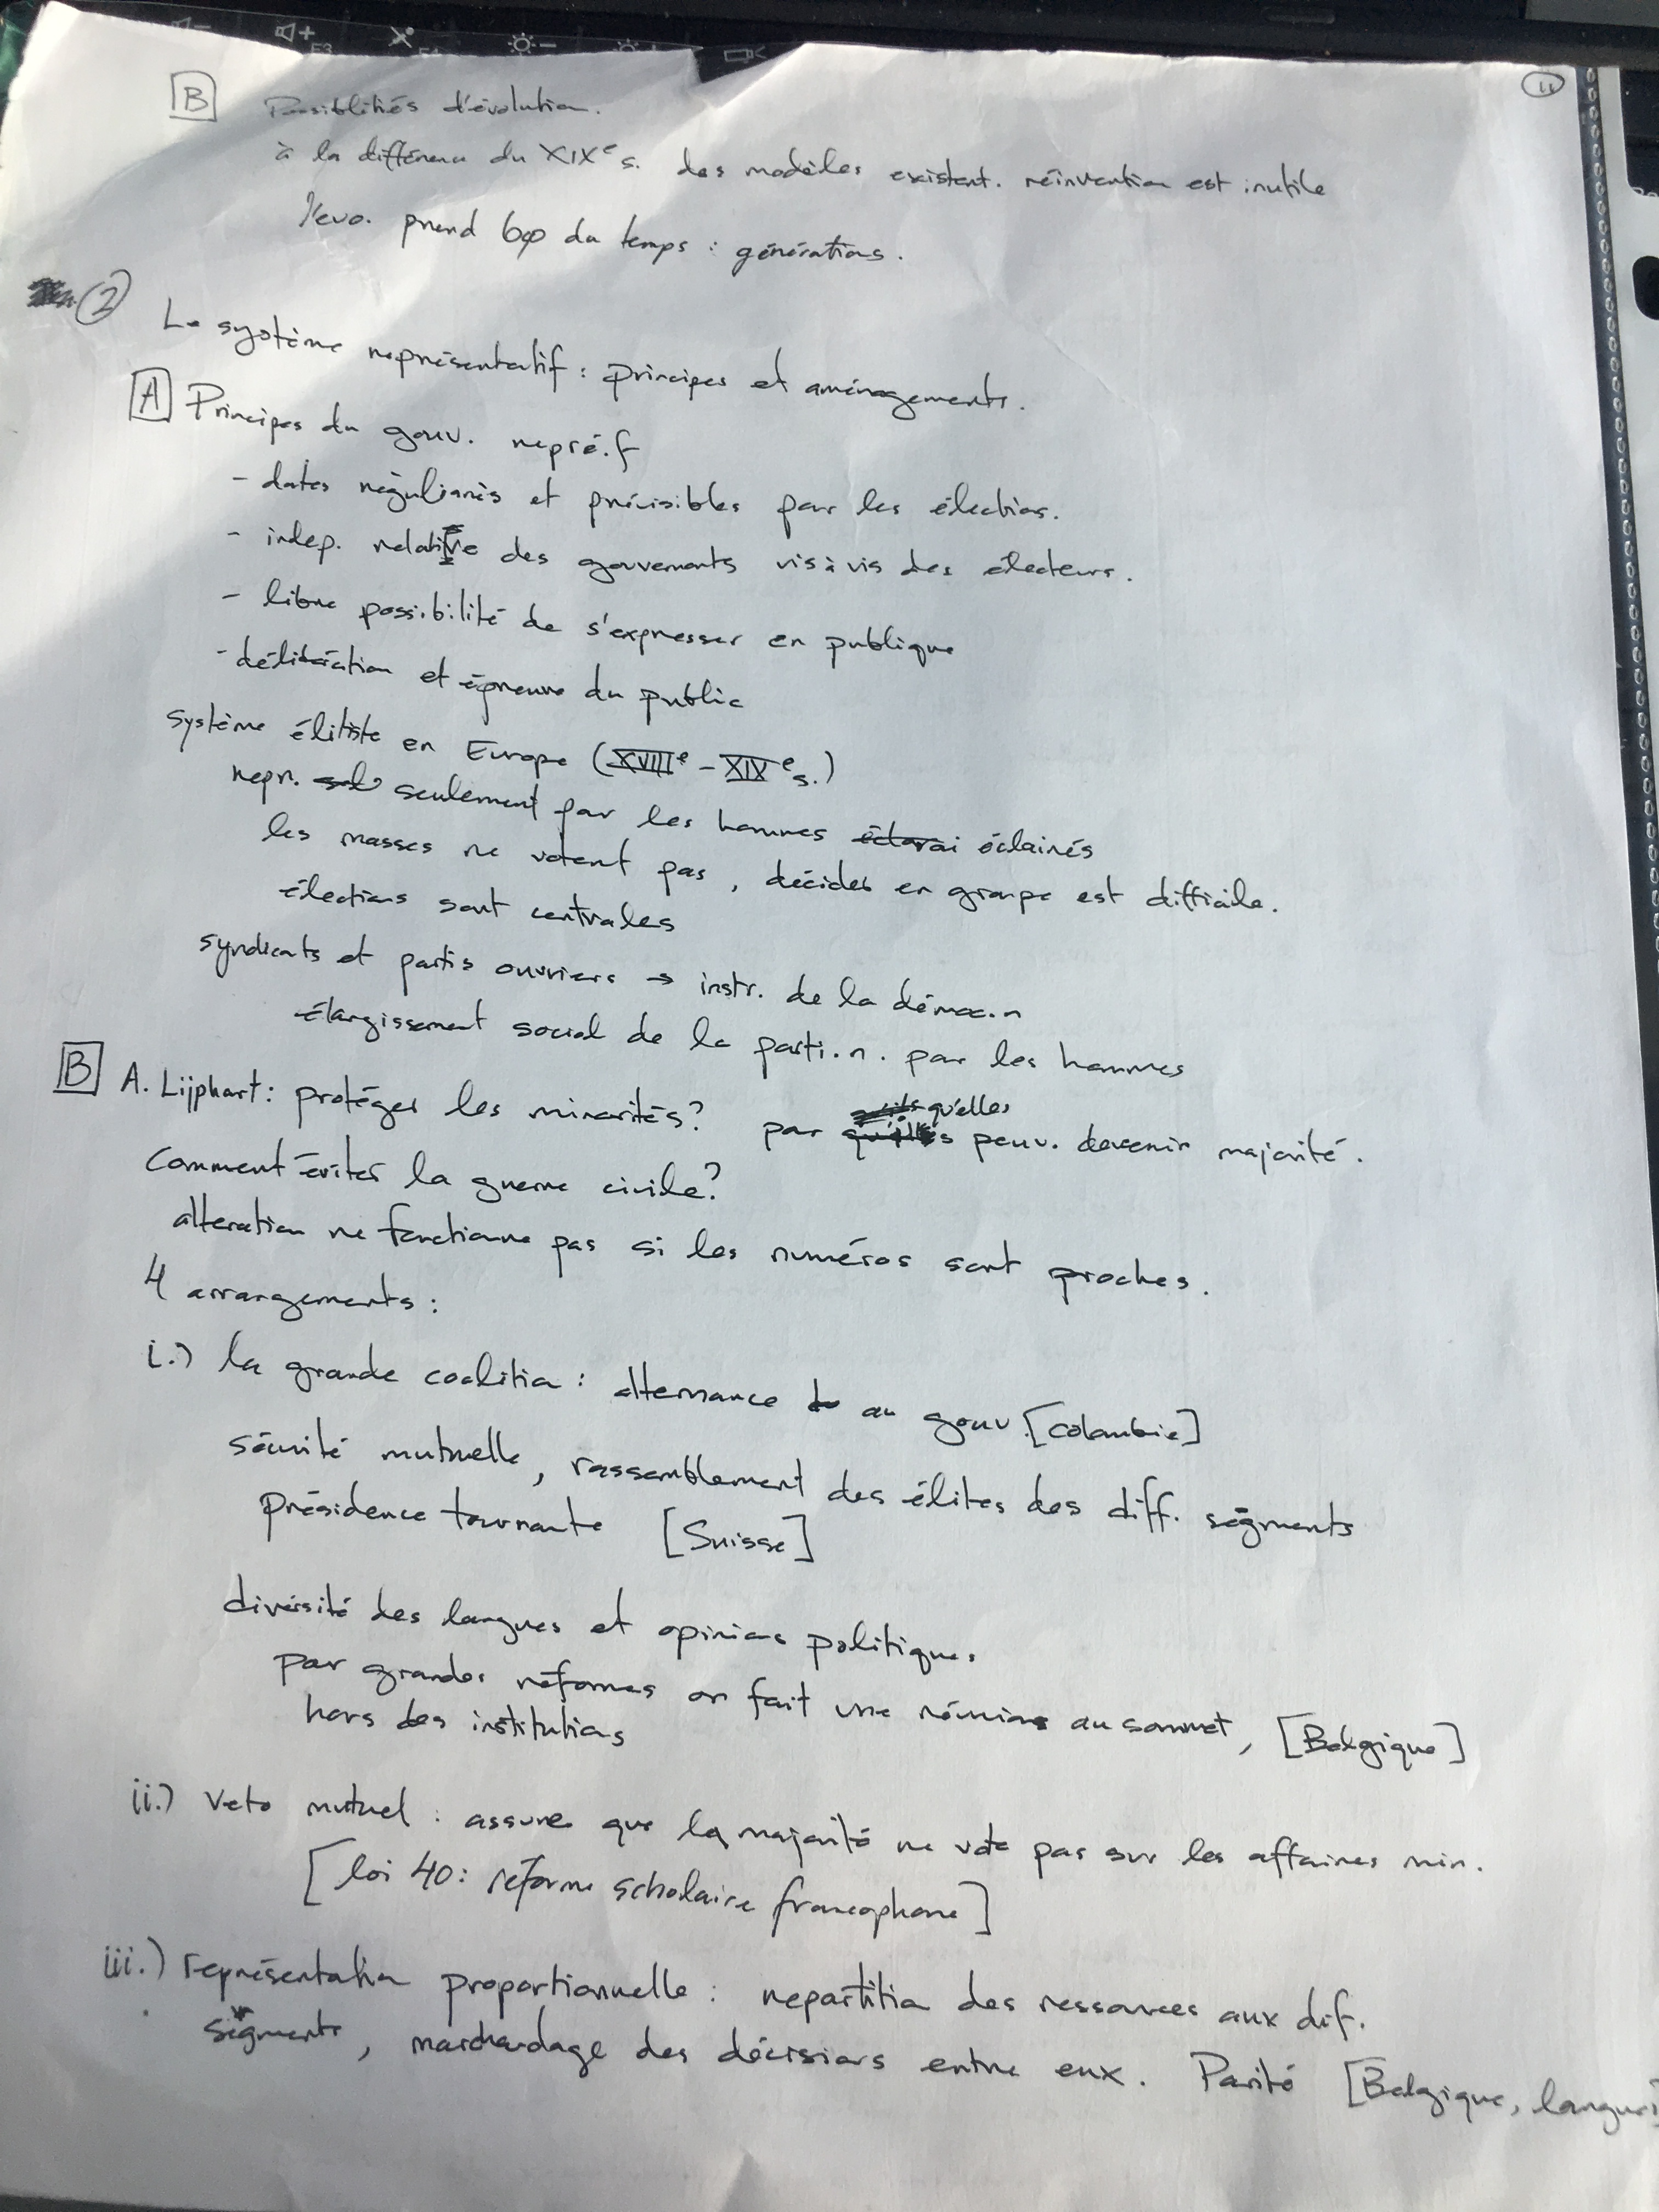 F3
11
B Possiblitiés d'évolution.
à la différence du XIXe s. des modèles existent. réinvention est inutile
l'evo. prend bcp du temps : générations.
2 Le système représentatif : principes et aménagements.
A Principes du gouv. repré.f
- dates réguliarès et prévisibles par les élections.
- indep. relative des gouvements vis à vis des électeurs.
- libre possibilité de s'expresser en publique
- délibération et épreuve du public
système élitiste en Europe (XVIIIe - XIXe s.)
repr. seulement par les hommes éclairés
les masses ne votent pas, décider en groupe est difficile.
élections sont centrales
syndicats et partis ouvriers → instr. de la démoc.n
élargissement social de la parti.n. par les hommes
B A. Lijphart : protéger les minorités? par qu'elles peuv. devenir majorité.
Comment éviter la guerre civile?
alteration ne fonctionne pas si les numéros sont proches.
4 arrangements :
i.) la grande coalition : alternance au gouv. [Colombie]
sécurité mutuelle, rassemblement des élites des diff. ségments
présidence tournante [Suisse]
diversité des langues et opinions politiques
par grandes réformes on fait une réunions au sommet, [Belgique]
hors des institutions
ii.) Veto mutuel : assure que la majorité ne vote pas sur les affaires min.
[loi 40 : réforme scholaire francophone]
iii.) représentation proportionnelle : repartition des ressources aux dif.
segments, marchandage des décisions entre eux. Parité [Belgique, langues]